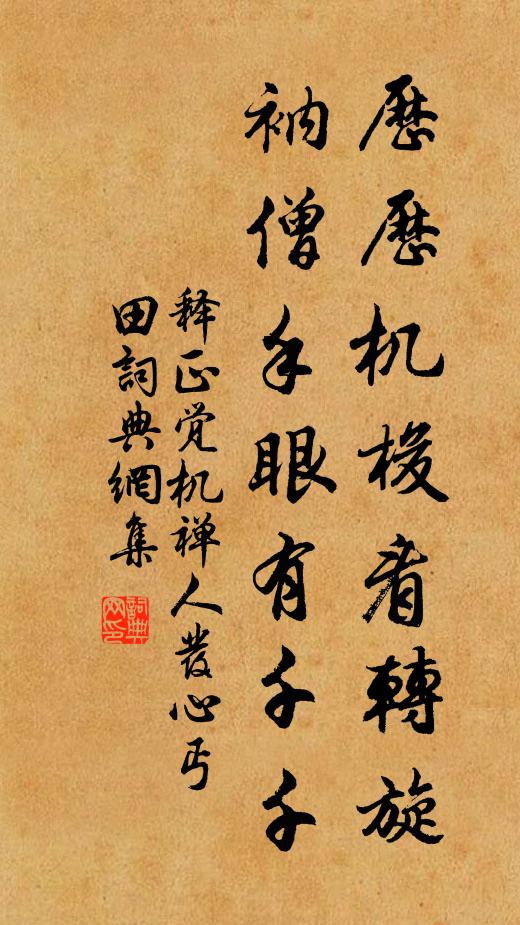 歷歷机梭看轉旋
衲僧手眼有千千
释正觉机禅人發心丐
田詞典網集
詞典
网印